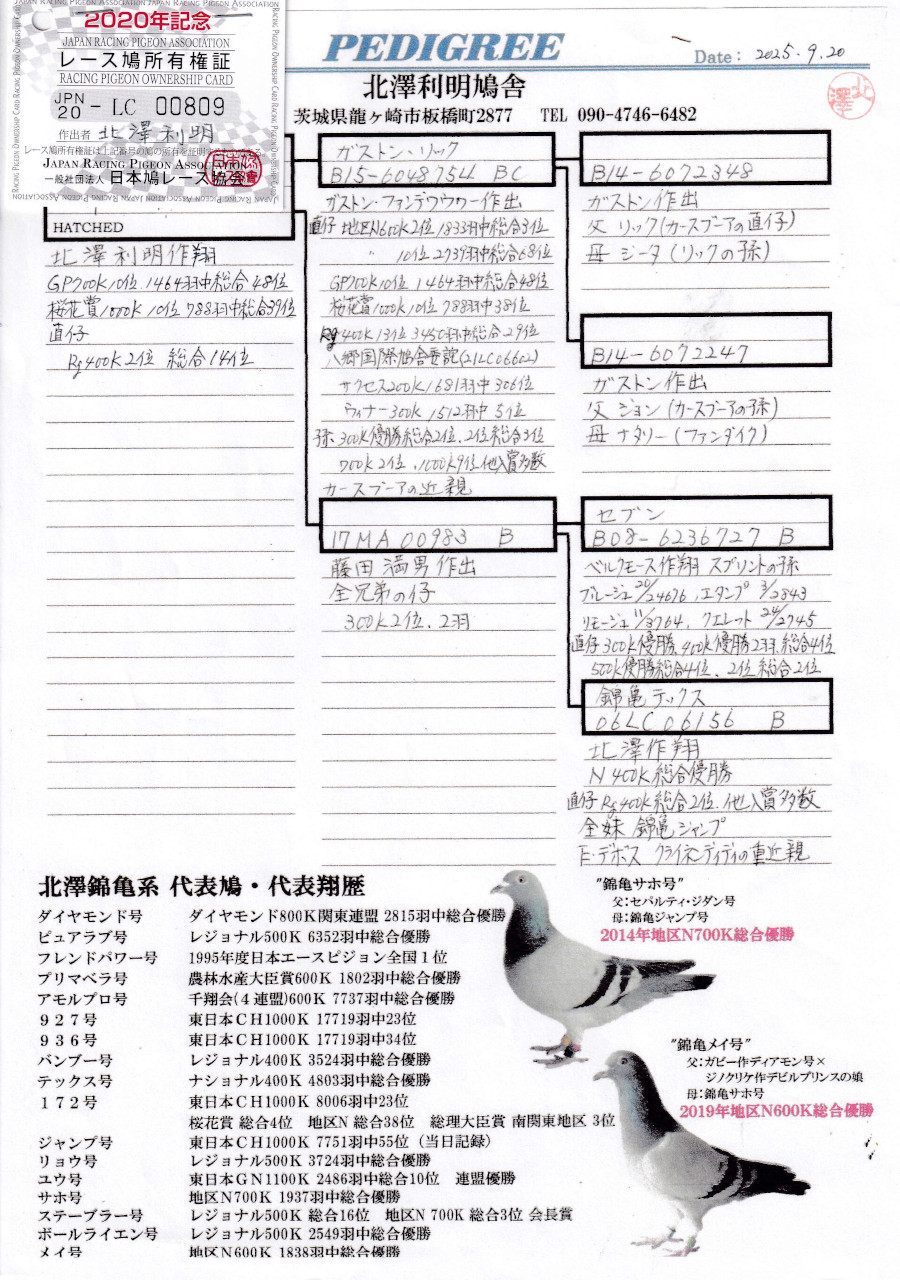 2020年記念
JAPAN RACING PIGEON ASSOCIATION
レース鳩所有権証
RACING PIGEON OWNERSHIP CARD
JPN 20 - LC 00809
作出者 北澤利明
レース鳩所有権証は上記番号の鳩の所有を証明する
JAPAN RACING PIGEON ASSOCIATION
一般社団法人 日本鳩レース協会
PEDIGREE
Date: 2025.9.20
北澤
北澤利明鳩舎
茨城県龍ヶ崎市板橋町2877 TEL 090-4746-6482
HATCHED
北澤利明作翔
GP700K10位 1464羽中総合48位
桜花賞1000K 10位 788羽中総合39位
直仔
Rg400K2位 総合14位
ガストン・リック
B15-6048754 BC
ガストン・ファンデウウワー作出
直仔 地区N600K2位 1833羽中総合3位
〃 10位 2739羽中総合68位
GP700K10位 1464羽中総合48位
桜花賞1000K10位 788羽中38位
Rg400K13位 3450羽中総合29位
八郷国際鳩舎委託(21LC06602)
サクセス200K1681羽中306位
ウィナー300K 1512羽中5位
孫 300K優勝総合2位、2位総合3位
700K2位、1000K9位他入賞多数
カースブーアの近親
17MA00983 B
藤田満男作出
全兄弟の仔
300K2位、2羽
B14-6072348
ガストン作出
父 リック(カースブーアの直仔)
母 ジータ(リックの孫)
B14-6072247
ガストン作出
父 ジョン(カースブーアの孫)
母 ナタリー(ファンダイク)
セブン
B08-6236727 B
ベルクモース作翔 スプリントの孫
ブルージュ20/24676、エタンプ3/2843
リモージュ11/3764、クエレット24/2745
直仔300K優勝、400K優勝2羽、総合4位
500K優勝総合4位、2位総合2位
錦亀テックス
06LC06156 B
北澤作翔
N400K総合優勝
直仔Rg400K総合2位、他入賞多数
全妹 錦亀ジャンプ
E・デボス クライネディディの重近親
北澤錦亀系 代表鳩・代表翔歴
ダイヤモンド号 ダイヤモンド800K関東連盟 2815羽中総合優勝
ピュアラブ号 レジョナル500K 6352羽中総合優勝
フレンドパワー号 1995年度日本エースピジョン全国1位
プリマベラ号 農林水産大臣賞600K 1802羽中総合優勝
アモルプロ号 千翔会(4連盟)600K 7737羽中総合優勝
927号 東日本CH1000K 17719羽中23位
936号 東日本CH1000K 17719羽中34位
バンブー号 レジョナル400K 3524羽中総合優勝
テックス号 ナショナル400K 4803羽中総合優勝
172号 東日本CH1000K 8006羽中23位
桜花賞 総合4位 地区N 総合38位 総理大臣賞 南関東地区 3位
ジャンプ号 東日本CH1000K 7751羽中55位 (当日記録)
リョウ号 レジョナル500K 3724羽中総合優勝
ユウ号 東日本GN1100K 2486羽中総合10位 連盟優勝
サホ号 地区N700K 1937羽中総合優勝
ステーブラー号 レジョナル500K 総合16位 地区N 700K 総合3位 会長賞
ボールライエン号 レジョナル500K 2549羽中総合優勝
メイ号 地区N600K 1838羽中総合優勝
"錦亀サホ号"
父:セパルティ・ジダン号
母:錦亀ジャンプ号
2014年地区N700K総合優勝
"錦亀メイ号"
父:ガビー作ディアモン号×
ジノクリケ作デビルプリンスの娘
母:錦亀サホ号
2019年地区N600K総合優勝